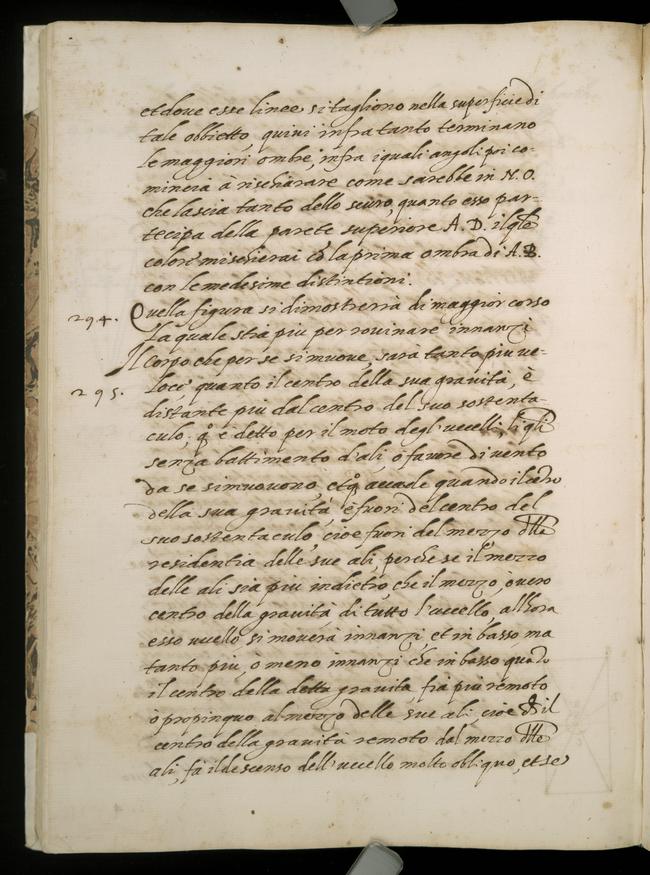 et dove esse linee si tagliono nella superficie di
tale obbietto, quivi infra tanto terminano
le maggiori ombre, infra i quali angoli poi co-
mincia à rischiarare come sarebbe in N. O.
che lascia tanto dello scuro, quanto esso par-
tecipa della parete superiore A. D. il qle
colore mischierai cõ la prima ombra di A. B.
con le medesime distintioni.
294. Quella figura si dimosterrà di maggior corso
la quale stia piu per rovinare innanzi
Il corpo che per se si muove, sarà tanto piu ve-
295. loce quanto il centro della sua gravità, è
distante piu dal centro del suo sostenta-
culo, qº è detto per il moto degli uccelli, li qli
senza battimento d'ali ò favore di vento
da se si muovono, et qº accade quando il cẽtro
della sua gravità, è fuori del centro del
suo sostentaculo, cioè fuori del mezzo dlle
residentia delle sue ali, perche se il mezzo
delle ali sia piu indietro, che il mezzo, ò vero
centro della gravità di tutto l'uccello, allhora
esso uccello si moverà innanzi, et in basso, ma
tanto più, ò meno innanzi che in basso quãdo
il centro della detta gravità fia più remoto
ò propinquo al mezzo delle sue ali, cioè che il
centro della gravità remoto dal mezzo dlle
ali, fà il descenso dell'uccello molto obliquo, et se